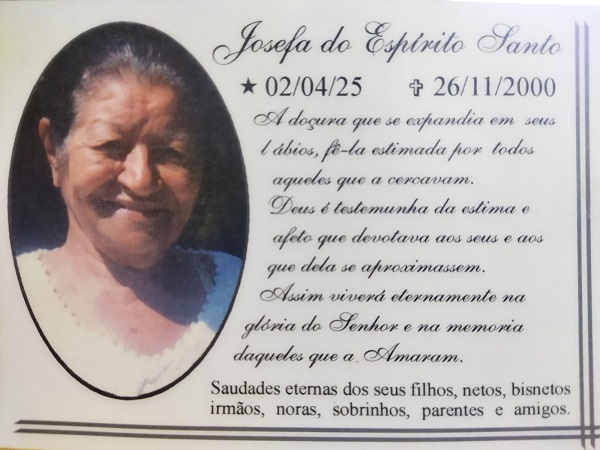 Josefa do Espírito Santo
★ 02/04/25 ✞ 26/11/2000
A doçura que se expandia em seus
l ábios, fê-la estimada por todos
aqueles que a cercavam.
Deus é testemunha da estima e
afeto que devotava aos seus e aos
que dela se aproximassem.
Assim viverá eternamente na
glória do Senhor e na memoria
daqueles que a Amaram.
Saudades eternas dos seus filhos, netos, bisnetos
irmãos, noras, sobrinhos, parentes e amigos.